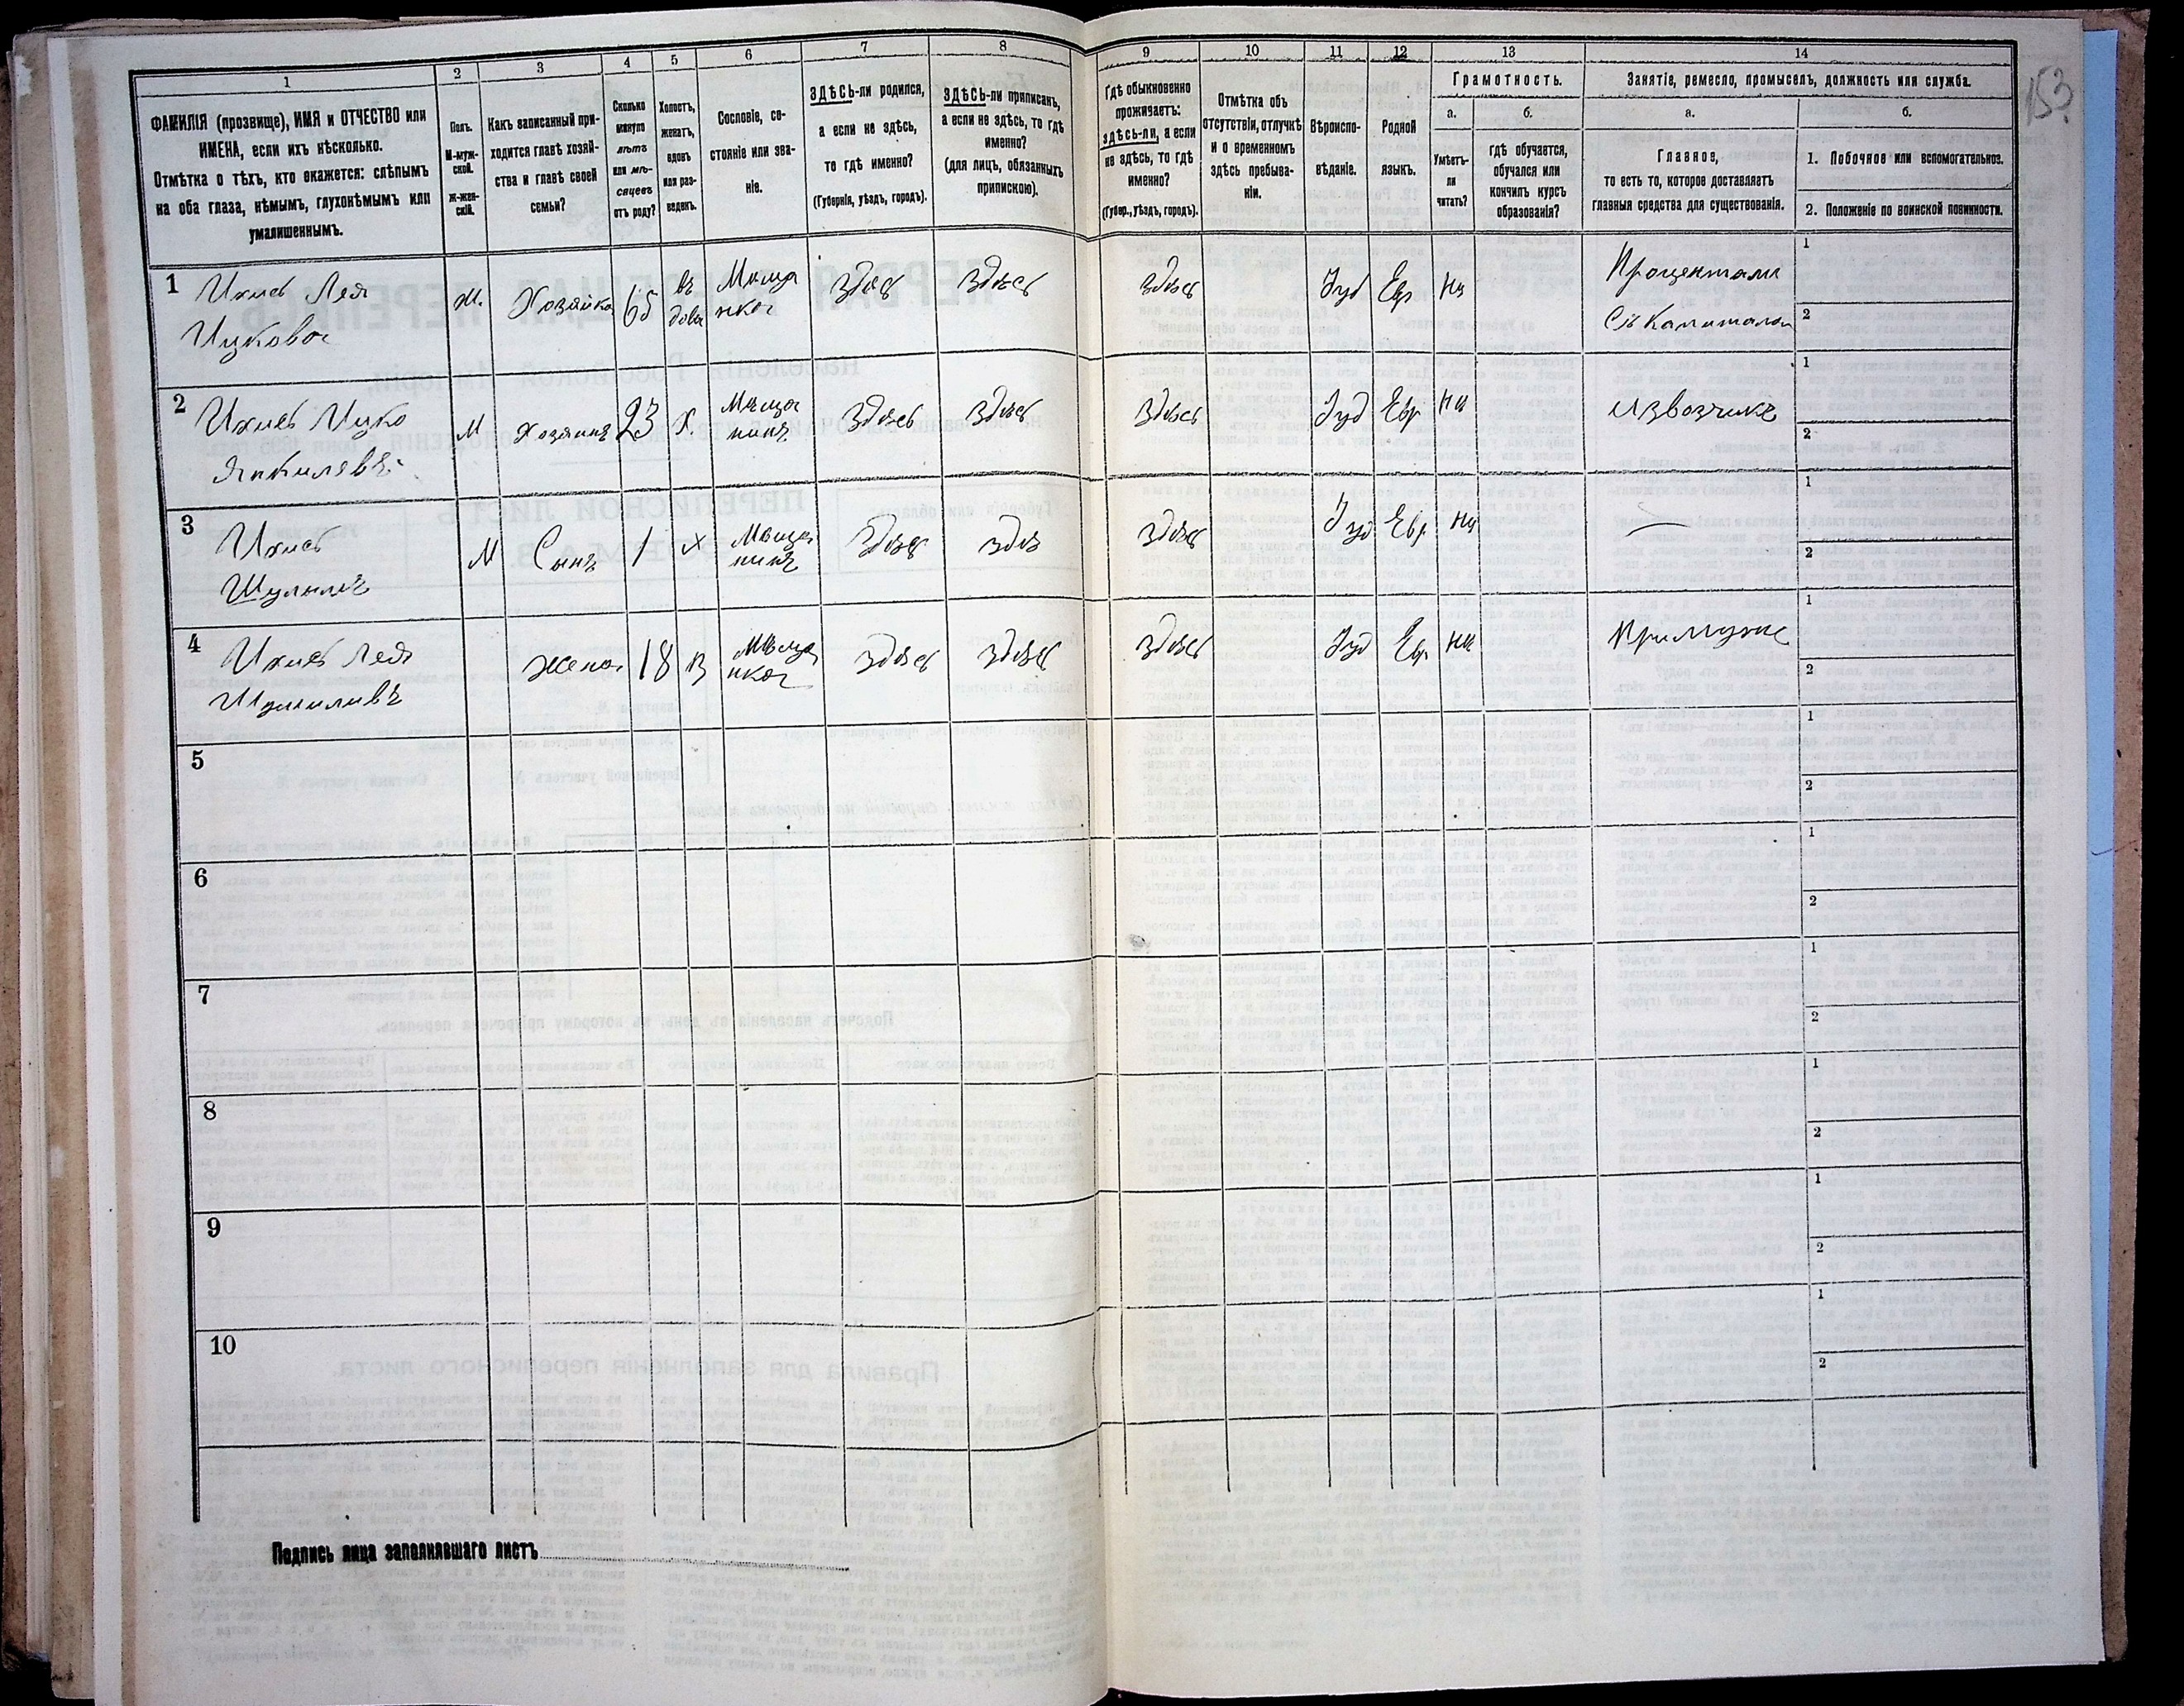 1 2 3 4 5 6 7 8
ФАМИЛІЯ (прозвище), ИМЯ и ОТЧЕСТВО или
ИМЕНА, если ихъ нѣсколько.
Отмѣтка о тѣхъ, кто окажется: слѣпымъ
на оба глаза, нѣмымъ, глухонѣмымъ или
умалишеннымъ.
Полъ.
М-муж-
ской.
Ж-жен-
скій.
Какъ записанный при-
ходится главѣ хозяй-
ства и главѣ своей
семьи?
Сколько
минуло
лѣтъ
или мѣ-
сяцевъ
отъ роду?
Холостъ,
женатъ,
вдовъ
или раз-
веденъ.
Сословіе, со-
стояніе или зва-
ніе.
ЗДѢСЬ-ли родился,
а если не здѣсь,
то гдѣ именно?
(Губернія, уѣздъ, городъ).
ЗДѢСЬ-ли приписанъ,
а если не здѣсь, то гдѣ
именно?
(для лицъ, обязанныхъ
припискою).
1 Ихисъ Лея
Ицкова
Ж. Хозяйка 65 въ
дова
Мѣща
нка
здѣсь здѣсь
2 Ихисъ Ицко
М Хозяинъ 23 Х. Мѣща
нинъ
здѣсь здѣсь
3 Ихисъ
М Сынъ 1 х Мѣща
нинъ
здѣсь здѣс
4 Ихисъ Лея
жена 18 з Мѣща
нка
здѣсь здѣсь
5
6
7
8
9
10
Подпись лица заполнявшаго листъ
9 10 11 12 13 14
153
Гдѣ обыкновенно
проживаетъ:
здѣсь-ли, а если
не здѣсь, то гдѣ
именно?
(Губер., уѣздъ, городъ).
Отмѣтка объ
отсутствіи, отлучкѣ
и о временномъ
здѣсь пребыва-
ніи.
Вѣроиспо-
вѣданіе.
Родной
языкъ.
Грамотность.
а. б.
Умѣетъ-
ли
читать?
гдѣ обучается,
обучался или
кончилъ курсъ
образованія?
Занятіе, ремесло, промыселъ, должность или служба.
а. б.
Главное,
то есть то, которое доставляетъ
главныя средства для существованія.
1. Побочное или вспомогательное.
2. Положеніе по воинской повинности.
здѣсь Іуд Евр нц Процентами
Съ Капитала
1
2
здѣсь Іуд Евр нц извозчикъ
1
2
здѣсь Іуд Евр. нц —
1
2
здѣсь Іуд Евр. нц при мужѣ
1
2
1
2
1
2
1
2
1
2
1
2
1
2